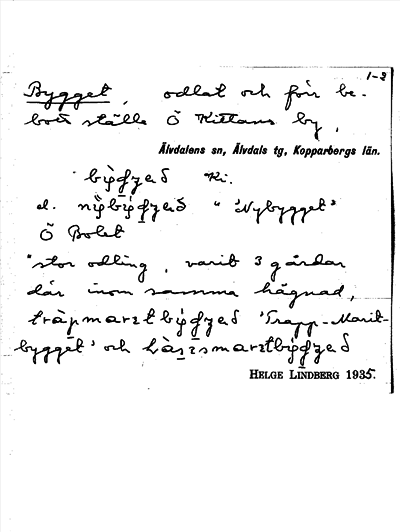 1-2
Bygget, odlat och förr be-
bott ställe Ö Kittans by,
Älvdalens sn, Älvdals tg, Kopparbergs län.
Ki.
el. "Nybygget"
Ö Bolet
"stor odling, varit 3 gårdar
där inom samma hägnad,
'Trapp-Marit-
bygget' och
HELGE LINDBERG 1935.